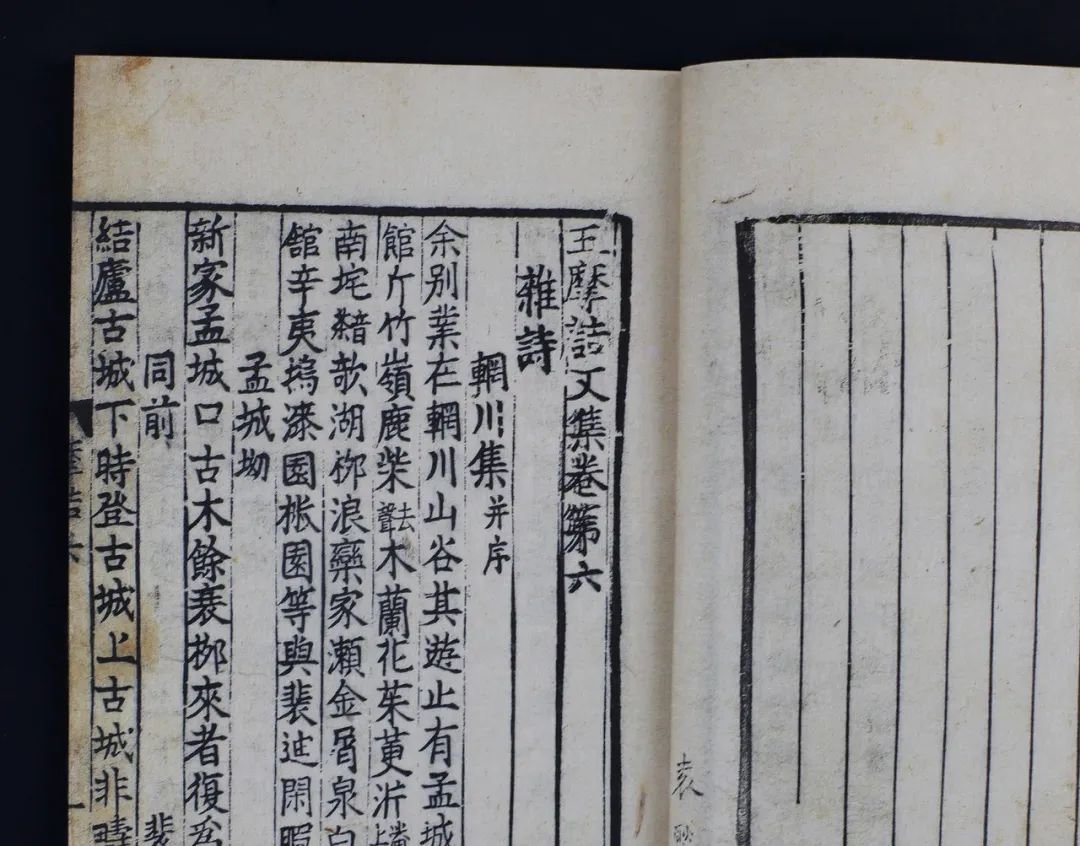 王摩詰文集卷第六
雜詩
輞川集并序
余别業在輞川山谷其遊止有孟城
館斤竹嶺鹿柴去聲木蘭花茱萸沜
南垞欹湖栁浪欒家瀨金屑泉白
舘辛夷塢漆園椒園等與裴迪閑暇
孟城坳
新家孟城口古木餘衰栁來者復為
同前 裴
結廬古城下時登古城上古城非疇